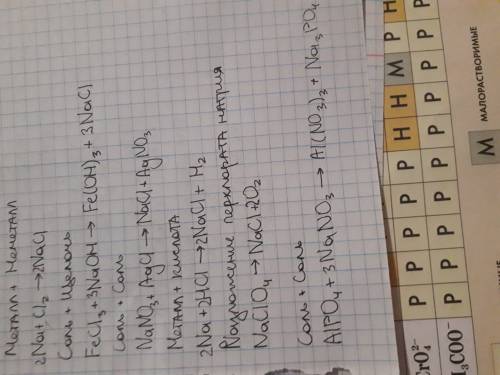 Металл + Неметалл
2Na + Cl₂ → 2NaCl
Соль + Щелочь
FeCl₃ + 3NaOH → Fe(OH)₃ + 3NaCl
Соль + Соль
NaNO₃ + AgCl → NaCl + AgNO₃
Металл + Кислота
2Na + 2HCl → 2NaCl + H₂
Разложение перхлората натрия
NaClO₄ → NaCl + 2O₂
Соль + Соль
AlPO₄ + 3NaNO₃ → Al(NO₃)₃ + Na₃PO₄
Р Р Р Р Н Н М Р Н
CrO₄²⁻ Р Р Р Р Р Р Р Р
H₃COO⁻
М МАЛОРАСТВОРИМЫЕ